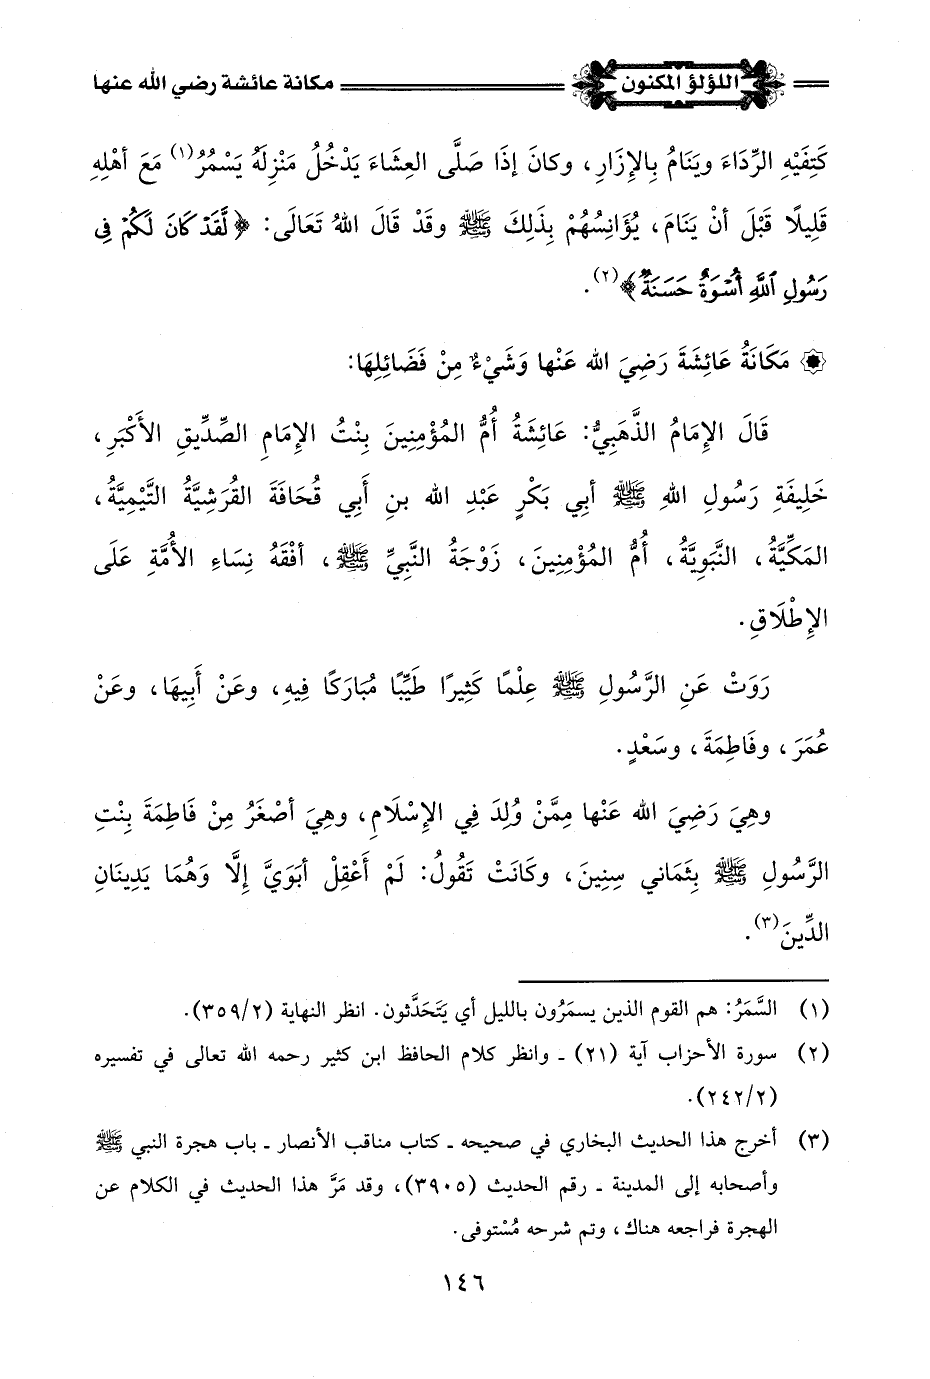 اللؤلؤ المكنون مكانة عائشة رضي الله عنها
كَتِفَيْهِ الرِّدَاءَ ويَنَامُ بِالإِزَارِ، وكانَ إذَا صَلَّى العِشَاءَ يَدْخُلُ مَنْزِلَهُ يَسْمُرُ(١) مَعَ أهْلِهِ
قَلِيلًا قَبْلَ أنْ يَنَامَ، يُؤَانِسُهُمْ بِذَلِكَ ﷺ وقَدْ قَالَ اللهُ تَعَالَى: ﴿لَّقَدْ كَانَ لَكُمْ فِى
رَسُولِ ٱللَّهِ أُسْوَةٌ حَسَنَةٌ﴾(٢).
۞ مَكَانَةُ عَائِشَةَ رَضِيَ الله عَنْها وَشَيْءٌ مِنْ فَضَائِلِهَا:
قَالَ الإِمَامُ الذَّهَبِيُّ: عَائِشَةُ أُمُّ المُؤْمِنِينَ بِنْتُ الإِمَامِ الصِّدِّيقِ الأَكْبَرِ،
خَلِيفَةِ رَسُولِ اللهِ ﷺ أبِي بَكْرٍ عَبْدِ الله بنِ أَبِي قُحَافَةَ القُرَشِيَّةُ التَّيْمِيَّةُ،
المَكِّيَّةُ، النَّبَوِيَّةُ، أُمُّ المُؤْمِنِينَ، زَوْجَةُ النَّبِيِّ ﷺ، أفْقَهُ نِسَاءِ الأُمَّةِ عَلَى
الإِطْلَاقِ.
رَوَتْ عَنِ الرَّسُولِ ﷺ عِلْمًا كَثِيرًا طَيِّبًا مُبَارَكًا فِيهِ، وعَنْ أَبِيهَا، وعَنْ
عُمَرَ، وفَاطِمَةَ، وسَعْدٍ.
وهِيَ رَضِيَ الله عَنْها مِمَّنْ وُلِدَ فِي الإِسْلَامِ، وهِيَ أصْغَرُ مِنْ فَاطِمَةَ بِنْتِ
الرَّسُولِ ﷺ بِثَمَاني سِنِينَ، وكَانَتْ تَقُولُ: لَمْ أَعْقِلْ أبَوَيَّ إِلَّا وَهُمَا يَدِينَانِ
الدِّينَ(٣).
(١) السَّمَرُ: هم القوم الذين يسمَرُون بالليل أي يَتَحَدَّثون. انظر النهاية (٣٥٩/٢).
(٢) سورة الأحزاب آية (٢١) ـ وانظر كلام الحافظ ابن كثير رحمه الله تعالى في تفسيره
(٢٤٢/٢).
(٣) أخرج هذا الحديث البخاري في صحيحه ـ كتاب مناقب الأنصار ـ باب هجرة النبي ﷺ
وأصحابه إلى المدينة ـ رقم الحديث (٣٩٠٥)، وقد مَرَّ هذا الحديث في الكلام عن
الهجرة فراجعه هناك، وتم شرحه مُسْتوفى.
١٤٦